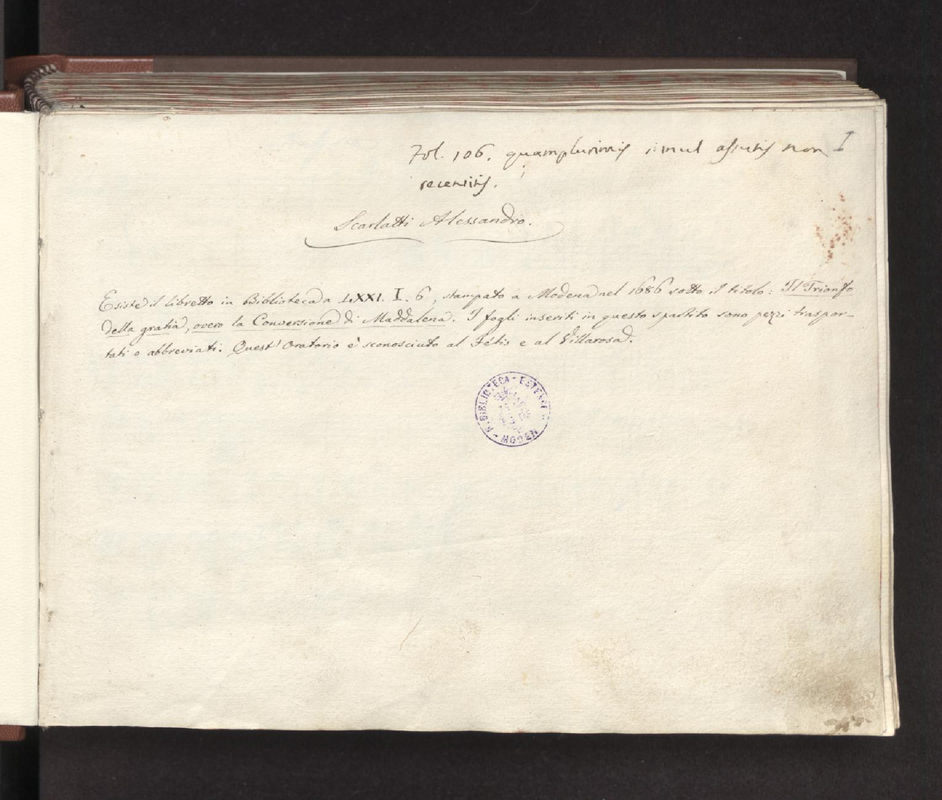 Fol. 106. quamplurimis simul assutis non I
recensitis.
Scarlatti Alessandro.
Esiste il libretto in Biblioteca a LXXI. I. 6, stampato a Modena nel 1686 sotto il titolo: Il Trionfo
della gratia, overo la Conversione di Maddalena. I fogli inseriti in questo spartito sono pezzi traspor-
tati o abbreviati. Quest' Oratorio è sconosciuto al Fétis e al Villarosa.
R. BIBLIOTECA ESTENSE
MODENA